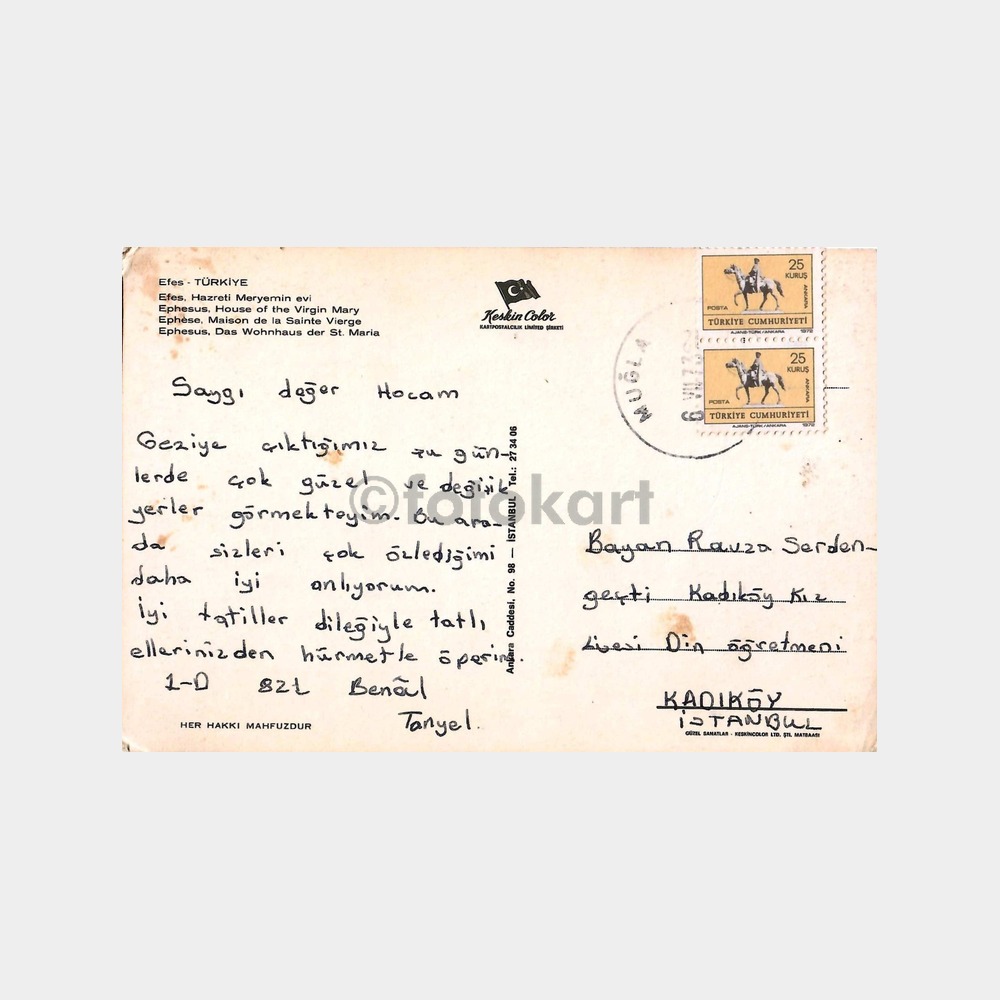 Efes - TÜRKİYE
Efes, Hazreti Meryemin evi
Ephesus, House of the Virgin Mary
Ephèse, Maison de la Sainte Vierge
Ephesus, Das Wohnhaus der St. Maria
Keskin Color
KARTPOSTALCILIK LİMİTED ŞİRKETİ
25
KURUŞ
ANKARA
POSTA
TÜRKİYE CUMHURİYETİ
AJANS-TÜRK/ANKARA 1972
25
KURUŞ
ANKARA
POSTA
TÜRKİYE CUMHURİYETİ
AJANS-TÜRK/ANKARA 1972
MUĞLA
Saygı değer Hocam
Geziye çıktığımız şu gün-
lerde çok güzel ve değişik
yerler görmekteyim. Bu ara-
da sizleri çok özlediğimi
daha iyi anlıyorum.
İyi tatiller dileğiyle tatlı
ellerinizden hürmetle öperim.
1-D 821 Benâl
Tanyel.
HER HAKKI MAHFUZDUR
Ankara Caddesi. No. 98 — İSTANBUL Tel.: 27 34 06
©fotokart
Bayan Ravza Serden-
geçti Kadıköy Kız
Lisesi Din öğretmeni
KADIKÖY
İSTANBUL
GÜZEL SANATLAR - KESKİNCOLOR LTD. ŞTİ. MATBAASI